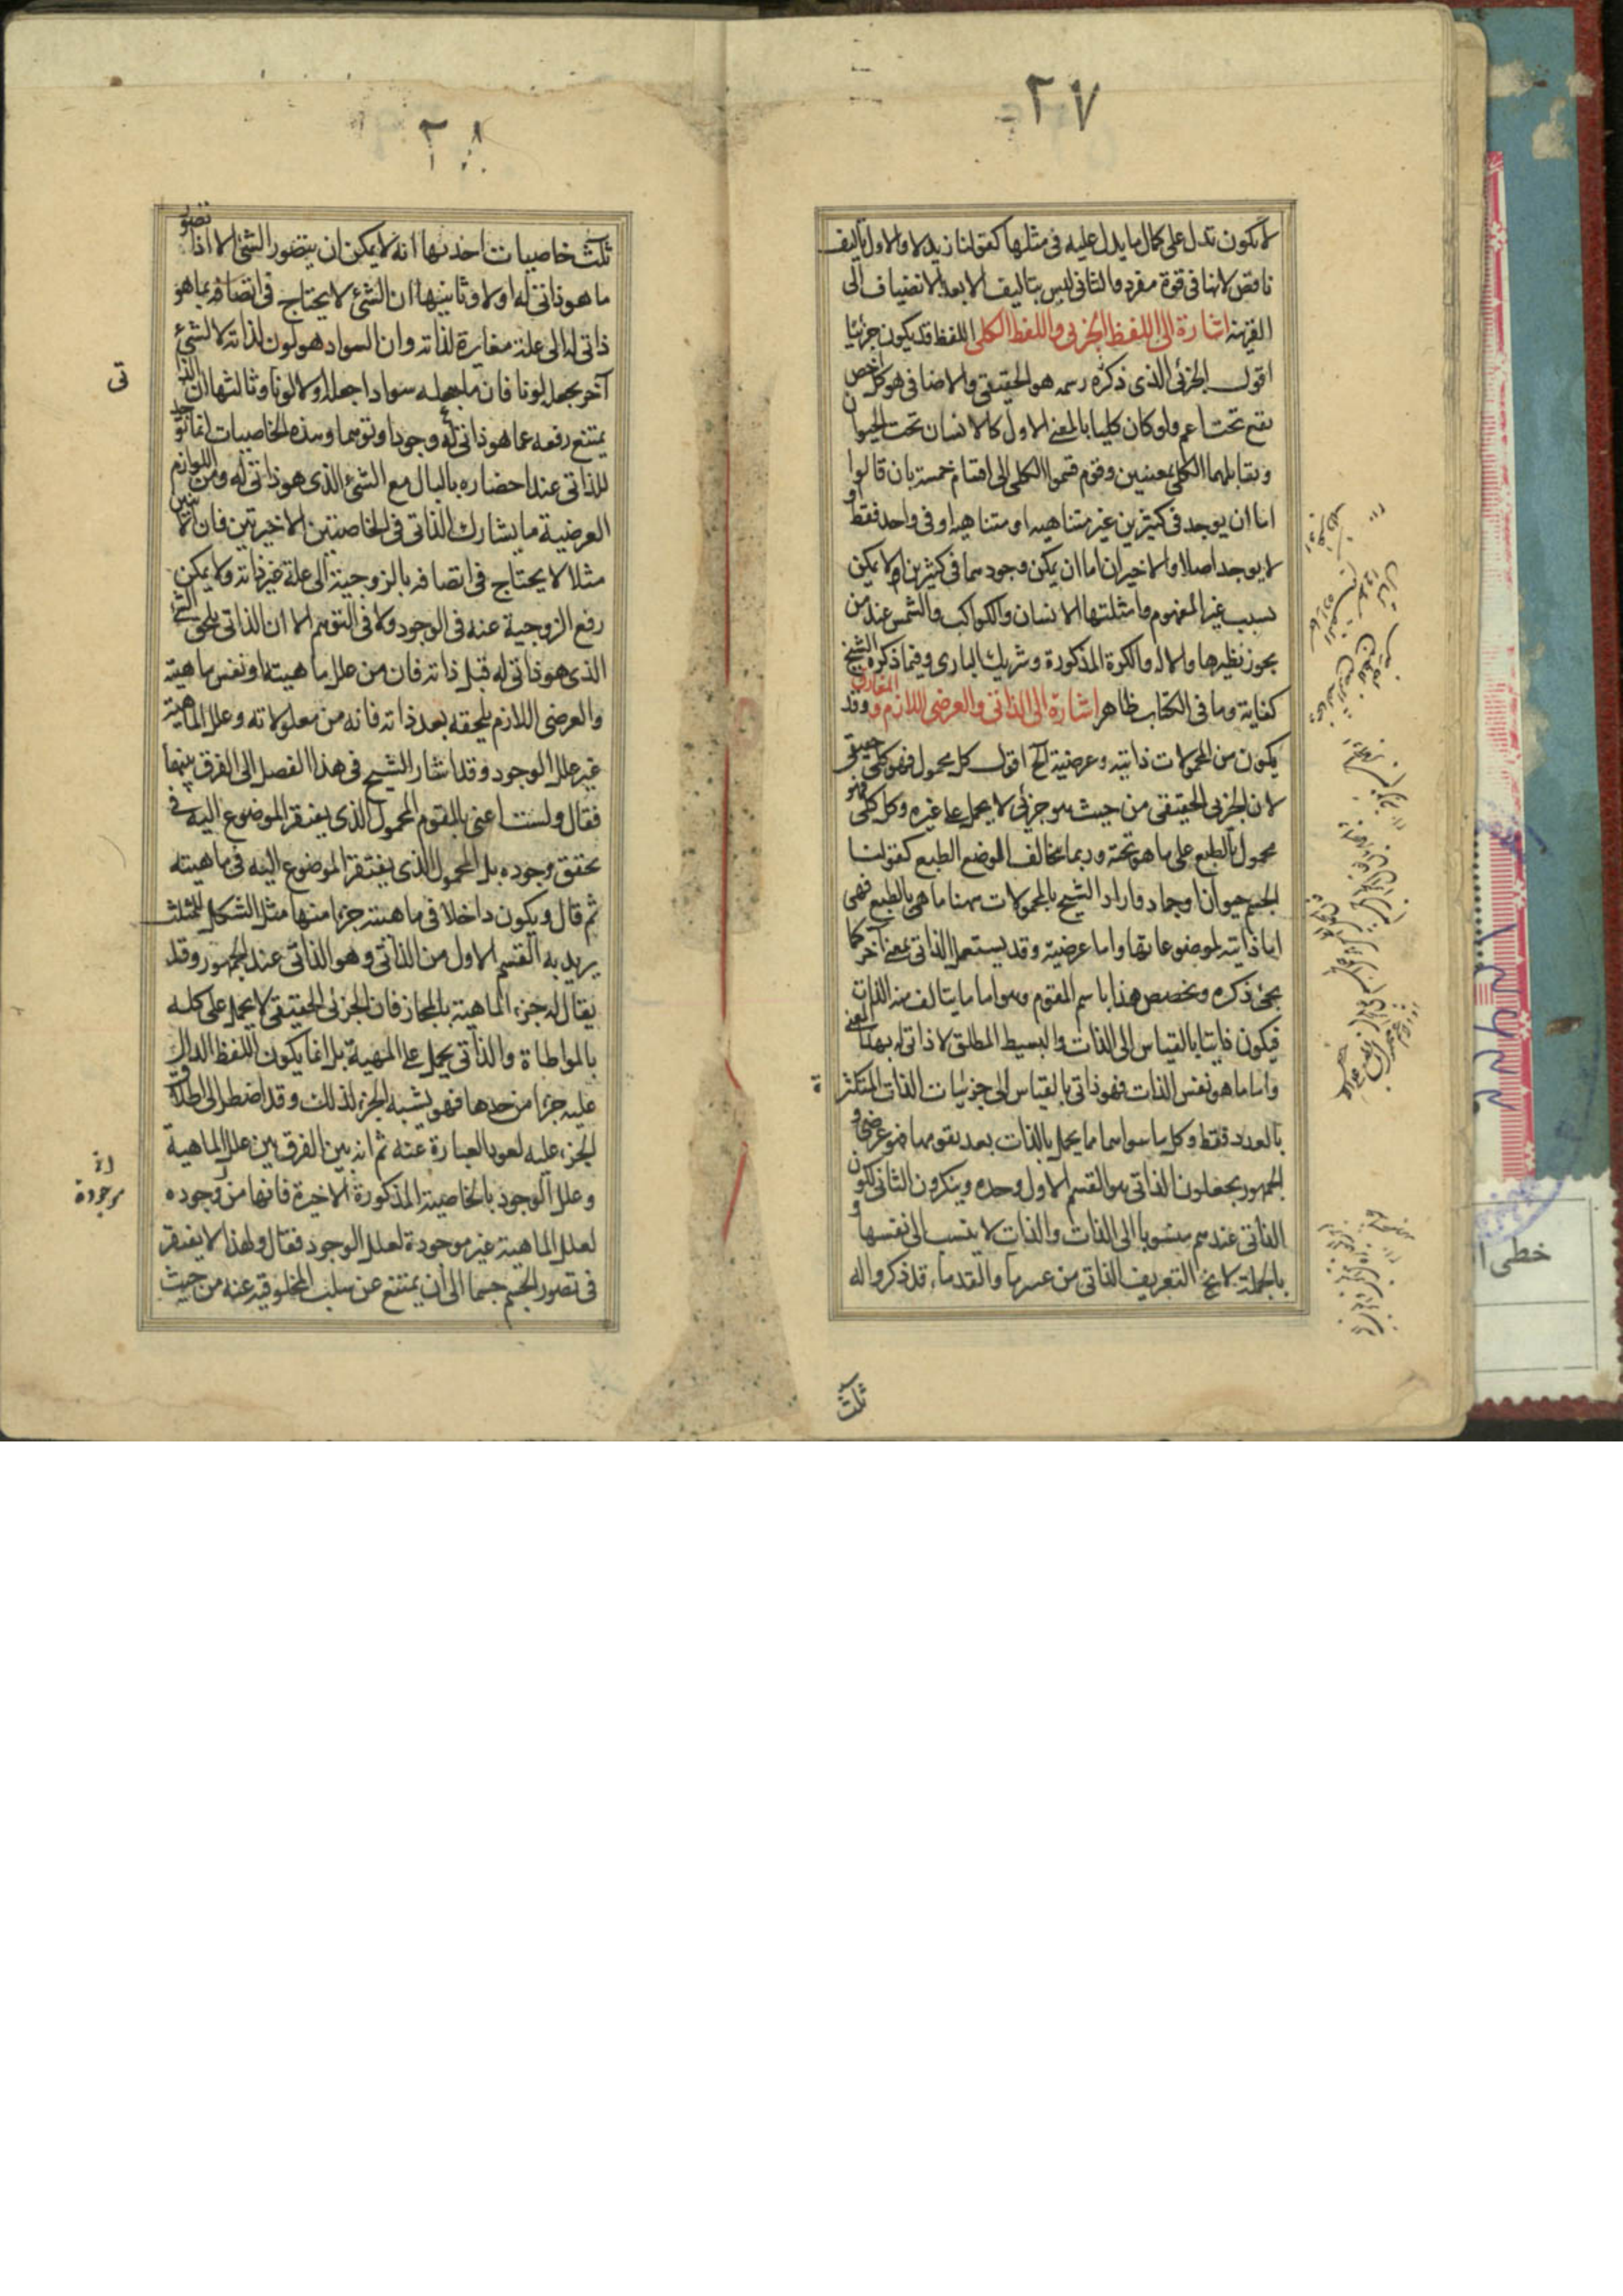 ٢٧
لا يكون تدل على كمال ما يدل عليه فى مثلها كقولنا زيد لا والاول تاليف
ناقص لانها فى قوة مفرد والثانى ليس بتاليف الا بعد الانضياف الى
القرينة اشارة الى اللفظ الجزئى واللفظ الكلى اللفظ قد يكون جزئيا
اقول الجزئى الذى ذكره رسمه هو الحقيقى والاضافى هو كل اخص
يقع تحت اعم ولو كان كليا بالمعنى الاول كالانسان تحت الحيوان
ويقابلهما الكلى بمعنيين وقوم قسموا الكلى الى اقسام خمسة بان قالوا
اما ان يوجد فى كثيرين غير متناهية او متناهية او فى واحد فقط او
لا يوجد اصلا والاخيران اما ان يمكن وجودهما فى كثيرين او لا يمكن
بسبب غير المفهوم وامثلتها الانسان والكواكب والشمس عند من
يجوز نظيرها والاله والكرة المذكورة وشريك البارى وفيما ذكره الشيخ
كفاية وما فى الكتاب ظاهر اشارة الى الذاتى والعرضى اللازم والمفارق وقد
يكون من المحمولات ذاتية وعرضية الخ اقول كل محمول فهو كلى حقيقى
لان الجزئى الحقيقى من حيث هو جزئى لا يحمل على غيره وكل كلى فهو
محمول بالطبع على ما هو تحته وربما يخالف الوضع الطبع كقولنا
الجسم حيوان او جماد واراد الشيخ بالمحمولات ههنا ما هى بالطبع فهى
اما ذاتية لموضوعاتها واما عرضية وقد يستعمل الذاتى بمعنى آخر كما
يجئ ذكره وتخصص هذا باسم المقوم وهو اما ما يتالف منه الذات
فيكون ذاتيا بالقياس الى الذات والبسيط المطلق لا ذاتى له بهذا المعنى
واما ما هو نفس الذات فهو ذاتى بالقياس الى جزئيات الذات المتكثرة
بالعدد فقط وكل ما سواهما مما يحمل بالذات بعد تقومها فهو عرضى و
الجمهور يجعلون الذاتى هو القسم الاول وحده وينكرون الثانى لكون
الذاتى عندهم منسوبا الى الذات والذات لا ينسب الى نفسها و
بالجملة لا يخ التعريف الذاتى من عسر ما والقدماء قد ذكروا له
ثلث
٢٨
ثلث خاصيات احديها انه لا يمكن ان يتصور الشئ الا اذا تصور
ما هو ذاتى له اولا وثانيها ان الشئ لا يحتاج فى اتصافه بما هو
ذاتى له الى علة مغايرة لذاته وان السواد هو لون لذاته لا لشئ
آخر يجعل لونا فان ما جعله سوادا جعله اولا لونا وثالثها ان الذا
تى
يمتنع رفعه عما هو ذاتى له وجودا وتوهما وهذه الخاصيات انما توجد
للذاتى عند احضاره بالبال مع الشئ الذى هو ذاتى له ومن اللوازم
العرضية ما يشارك الذاتى فى الخاصتين الاخيرتين فان الاثنين
مثلا لا يحتاج فى اتصافه بالزوجية الى علة غير ذاته ولا يمكن
رفع الزوجية عنه فى الوجود ولا فى التوهم الا ان الذاتى يلحق الشئ
الذى هو ذاتى له قبل ذاته فان من علل ماهيته او نفس ماهيته
والعرضى اللازم يلحقه بعد ذاته فانه من معلولاته وعلل الماهية
غير علل الوجود وقد اشار الشيخ فى هذا الفصل الى الفرق بينهما
فقال ولست اعنى بالمقوم المحمول الذى يفتقر الموضوع اليه فى
تحقق وجوده بل المحمول الذى يفتقر الموضوع اليه فى ماهيته
ثم قال ويكون داخلا فى ماهيته جزءا منها مثل الشكل للمثلث
يريد به القسم الاول من الذاتى وهو الذاتى عند الجمهور وقد
يقال له جزء الماهية بالمجاز فان الجزئى الحقيقى لا يحمل على كله
بالمواطاة والذاتى يحمل على المهية بل انما يكون اللفظ الدال
عليه جزءا من حدها فهو يشبه الجزء لذلك وقد اضطر الى اطلاق
الجزء عليه لعوز العبارة عنه ثم انه بين الفرق بين علل الماهية
وعلل الوجود بالخاصية المذكورة الاخيرة فانها من وجوده
موجودة
لعلل الماهية غير موجودة لعلل الوجود فقال ولهذا لا يفتقر
فى تصور الجسم جسما الى ان يمتنع عن سلب المخلوقية عنه من حيث
خطى